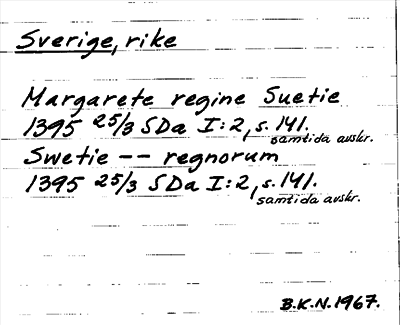 Sverige, rike
Margarete regine Suetie
1395 25/3 SDa I:2, s. 141.
samtida avskr.
Swetie -- regnorum
1395 25/3 SDa I:2, s. 141.
samtida avskr.
B.K.N. 1967.